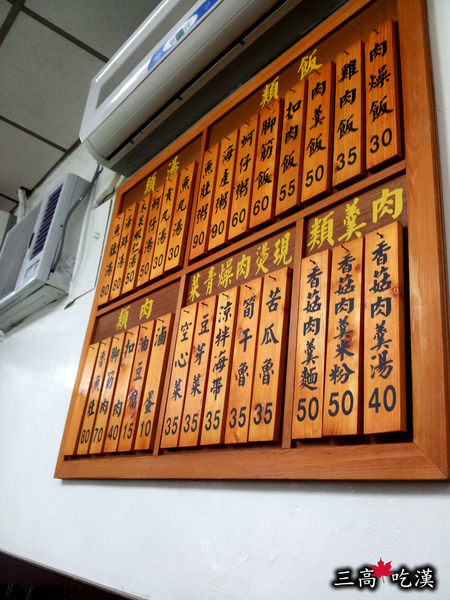 飯類
肉燥飯 30
雞肉飯 35
肉羹飯 50
扣肉飯 55
腳筋飯 60
蚵仔粥 60
海產粥 90
魚肚粥 90
湯類
魚丸湯 30
貢丸湯 30
蚵仔湯 50
魚肚湯
肉羹類
香菇肉羹湯 40
香菇肉羹米粉 50
香菇肉羹麵 50
現燙肉燥青菜
苦瓜魯 35
筍干魯 35
涼拌海帶 35
豆芽菜 35
空心菜 35
肉類
滷蛋 10
油豆腐 15
扣肉 40
腳筋 70
魚肚 80
三高吃漢